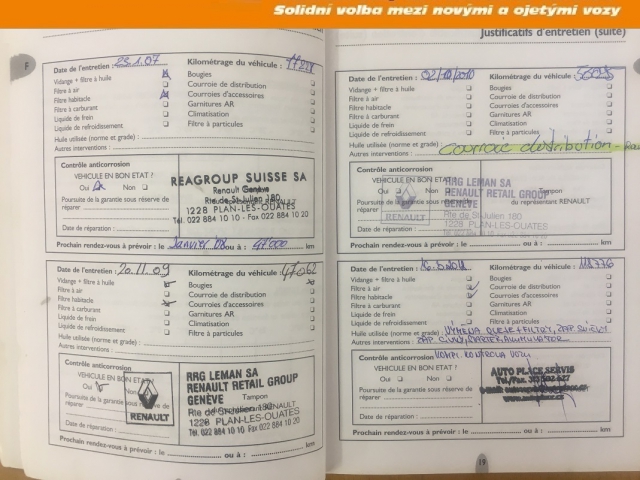 Solidní volba mezi novými a ojetými vozy
F
Date de l'entretien : 23.1.07 Kilométrage du véhicule :
Vidange + filtre à huile Bougies
Filtre à air Courroie de distribution
Filtre habitacle Courroies d'accessoires
Filtre à carburant Garnitures AR
Liquide de frein Climatisation
Liquide de refroidissement Filtre à particules
Huile utilisée (norme et grade) :
Autres interventions :
Contrôle anticorrosion
VEHICULE EN BON ETAT ?
Oui Non
Poursuite de la garantie sous réserve de
réparer
Date de réparation :
REAGROUP SUISSE SA
Renault Genève
Rte de St-Julien 180
1228 PLAN-LES-OUATES
Tél. 022 884 10 10 - Fax 022 884 10 20
Prochain rendez-vous à prévoir : le Janvier 08 ou à : 41'000 km
Date de l'entretien : 20.11.09 Kilométrage du véhicule : 47062
Vidange + filtre à huile Bougies
Filtre à air Courroie de distribution
Filtre habitacle Courroies d'accessoires
Filtre à carburant Garnitures AR
Liquide de frein Climatisation
Liquide de refroidissement Filtre à particules
Huile utilisée (norme et grade) :
Autres interventions :
Contrôle anticorrosion
VEHICULE EN BON ETAT ?
Oui Non
Poursuite de la garantie sous
réparer
Date de réparation :
RENAULT
RRG LEMAN SA
RENAULT RETAIL GROUP
GENÈVE Tampon
Rte de St-Julien 180
1228 PLAN-LES-OUATES
Tél. 022 884 10 10 - Fax 022 884 10 20
Prochain rendez-vous à prévoir : le ou à : km
Justificatifs d'entretien (suite)
Date de l'entretien : 02/10/2010 Kilométrage du véhicule :
Vidange + filtre à huile Bougies
Filtre à air Courroie de distribution
Filtre habitacle Courroies d'accessoires
Filtre à carburant Garnitures AR
Liquide de frein Climatisation
Liquide de refroidissement Filtre à particules
Huile utilisée (norme et grade) :
Autres interventions : courroie distribution
Contrôle anticorrosion
VEHICULE EN BON ETAT
Oui Non
Poursuite de la garantie sous réserve de
réparer
Date de réparation :
RENAULT
RRG LEMAN SA
RENAULT RETAIL GROUP
GENÈVE
Tampon
du représentant RENAULT
Rte de St-Julien 180
1228 PLAN-LES-OUATES
Prochain rendez-vous à prévoir : le ou à : km
Date de l'entretien : Kilométrage du véhicule :
Vidange + filtre à huile Bougies
Filtre à air Courroie de distribution
Filtre habitacle Courroies d'accessoires
Filtre à carburant Garnitures AR
Liquide de frein Climatisation
Liquide de refroidissement Filtre à particules
Huile utilisée (norme et grade) :
Autres interventions :
Contrôle anticorrosion
VEHICULE EN BON ETAT ?
Oui Non
Poursuite de la garantie sous réserve de
réparer
Date de réparation :
AUTO PLACE SERVIS
Prochain rendez-vous à prévoir : le ou à : km
19